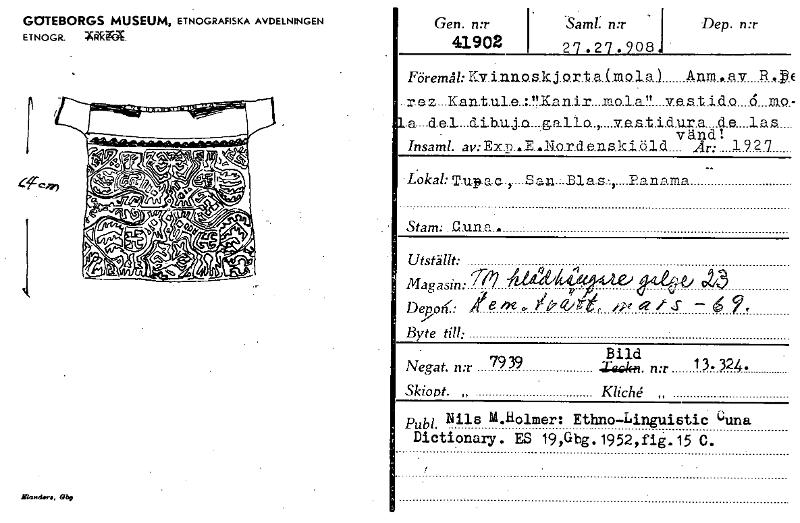 GÖTEBORGS MUSEUM, ETNOGRAFISKA AVDELNINGEN
ETNOGR. ARKEOL.
64 cm
Klanders, Gbg
Gen. n:r Saml. n:r Dep. n:r
41902 27.27.908.
Föremål: Kvinnoskjorta(mola) Anm.av R.Pe
rez Kantule:"Kanir mola" vestido ó mo-
la del dibujo gallo, vestidura de las
vänd!
Insaml. av: Exp.E.Nordenskiöld År: 1927
Lokal: Tupac, San Blas, Panama
Stam: Cuna.
Utställt:
Magasin: TM klädhängare galge 23
Depon.: Kem.tvätt. mars - 69.
Byte till:
Bild
Negat. n:r 7939 Teckn. n:r 13.324.
Skiopt. „ Kliché „
Publ. Nils M.Holmer: Ethno-Linguistic Cuna
Dictionary. ES 19,Gbg.1952,fig.15 C.